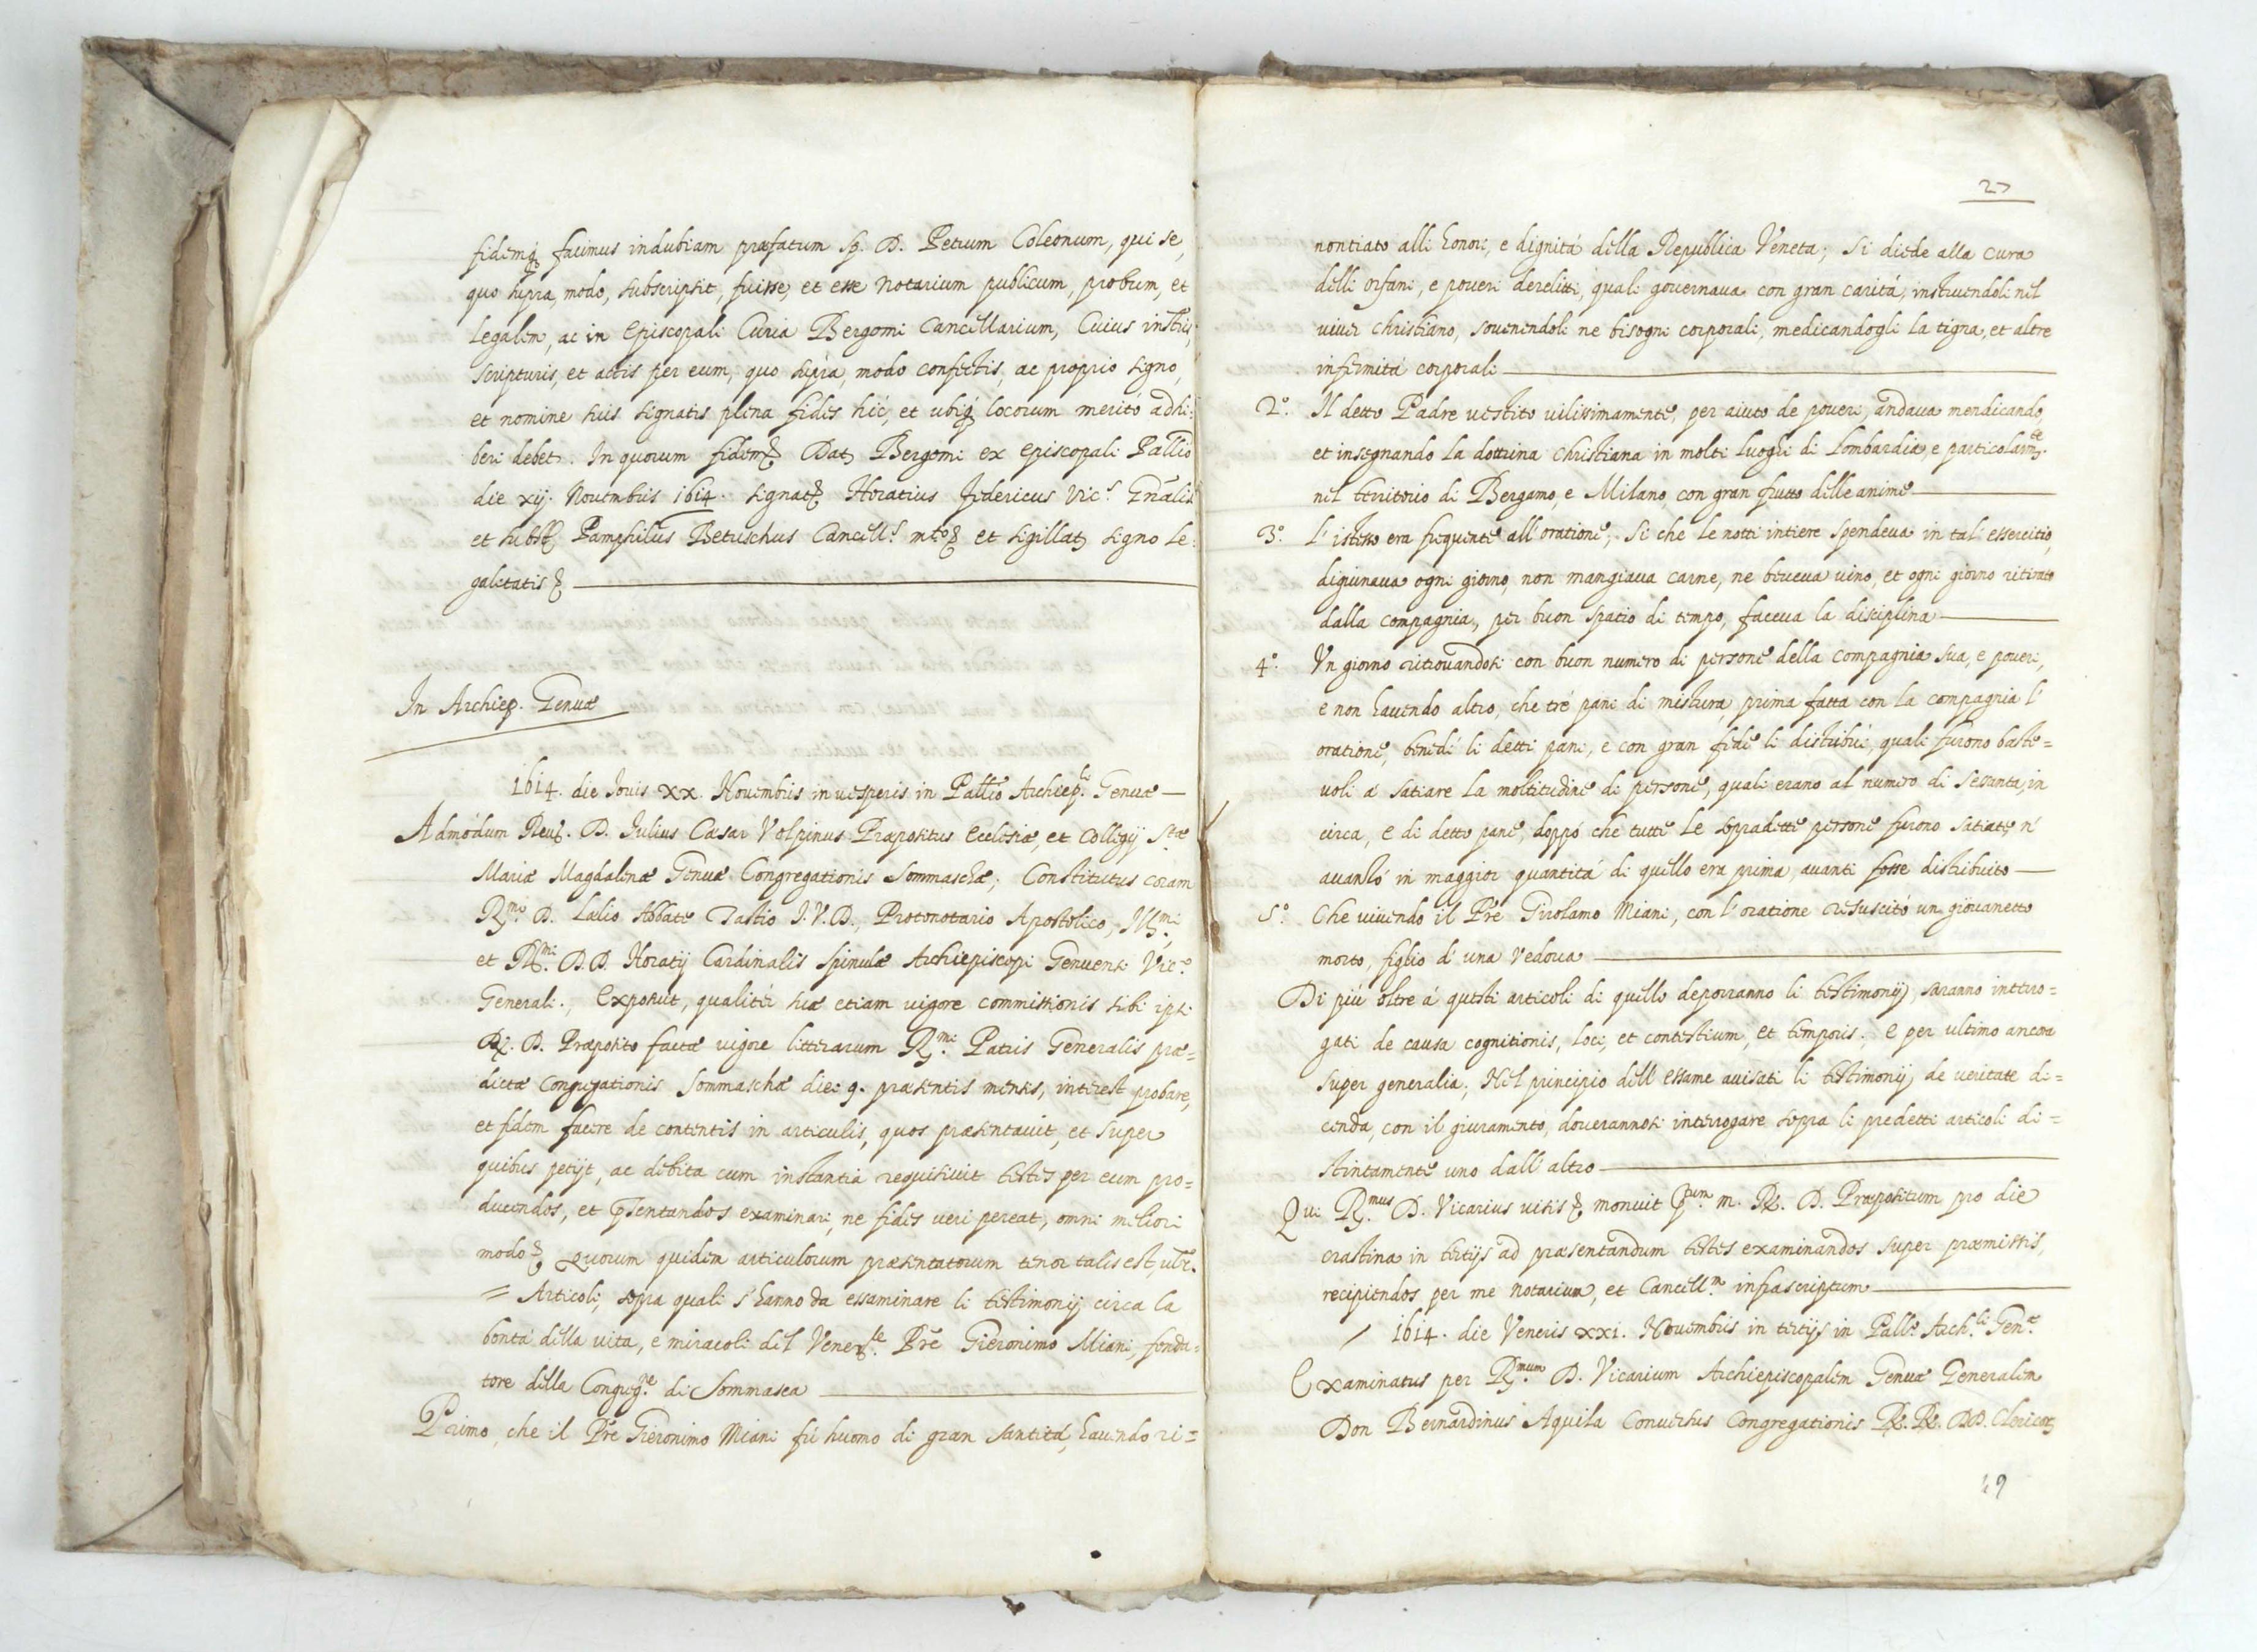 fidemq; facimus indubiam præfatum Sp. D. Petrum Coleonum, qui se,
quo supra, modo, subscripsit, fuisse, et esse Notarium publicum, probum, et
Legalem, ac in Episcopali Curia Bergomi Cancellarium, Cuius instris,
scripturis, et actis per eum, quo supra, modo confectis, ac proprio signo,
et nomine suis signatis plena fides hic, et ubiq; locorum meritò adhi:
beri debet. In quorum fidem Dat Bergomi ex Episcopali Pallio
die xij. Novembris 1614. signat Horatius Federicus Vics Gñalis
et subst Pamphilus Betuschus Cancells mto et sigillat signo Le:
galitatis
In Archiep. Genuæ
1614. die Jovis XX. Novembris in vesperis in Pallio Archiep.li Genuæ
Admodum Reu. D. Julius Cæsar Volpinus Præpositus Ecclesiæ, et Collegij S.tæ
Mariæ Magdalenæ Genuæ Congregationis Sommaschæ; Constitutus coram
R.mo D. Lælio Abbate Tastio J.V.D., Protonotario Apostolico, Ill.mi
et R.mi D.D. Horatij Cardinalis Spinulæ Archiepiscopi Genuensi Vic.o
Generali., Exposuit, qualiter suæ etiam vigore commissionis sibi ipsi
R. D. Præposito factæ vigore litterarum R.mi Patris Generalis præ=
dictæ Congregationis Sommaschæ diei 9. præsentis mensis, interest probare,
et fidem facere de contentis in articulis, quos præsentavit, et super
quibus petijt, ac debita cum instantia requisivit testes per eum pro=
ducendos, et pſentandos examinari, ne fides veri pereat, omni meliori
modo Quorum quidem articulorum præsentatorum tenor talis est, ut.
= Articoli, sopra quali s'hanno da essaminare li testimonij circa la
bontà della vita, e miracoli del Vener.le Prê Gieronimo Miani, fonda=
tore della Congreg.ne di Sommasca
Primo, che il Prê Gieronimo Miani fù huomo di gran santità, havendo ri=
27
nontiato alli honori, e dignità della Republica Veneta; si diede alla cura
delli orfani, e poveri derelitti, quali governava con gran carità, instruendoli nel
viver christiano, sovenendoli ne bisogni corporali, medicandogli la tigna, et altre
infirmità corporali
2.o Il detto Padre vestito vilissimamente, per aiuto de poveri, andava mendicando,
et insegnando la dottrina Christiana in molti luoghi di Lombardia, e particolarm.te
nel territorio di Bergamo, e Milano, con gran frutto delle anime
3.o L'istesso era frequente all'oratione; Si che le notti intiere spendeva in tal essercitio,
digiunava ogni giorno, non mangiava carne, ne beveva vino, et ogni giorno ritirato
dalla compagnia, per buon spatio di tempo, faceva la disciplina
4.o Un giorno ritrovandosi con buon numero di persone della compagnia sua, e poveri,
e non havendo altro, che trè pani di mistura, prima fatta con la compagnia l'
oratione, benedì li detti pani, e con gran fede li distribuì, quali furono baste=
voli à satiare la moltitudine di persone, quali erano al numero di sessanta, in
circa, e di detto pane, doppò che tutte le sopradette persone furono satiate, n'
avanzò in maggior quantità di quello era prima, avanti fosse distribuito
5.o Che vivendo il Prê Girolamo Miani, con l'oratione resuscitò un giovanetto
morto, figlio d'una vedova
Di più oltre à questi articoli di quello deporranno li testimonij, saranno interro=
gati de causa cognitionis, loci, et contestium, et temporis; e per ultimo ancora
super generalia; Nel principio dell'essame avisati li testimonij de veritate di=
cenda, con il giuramento, doverannosi interrogare sopra li predetti articoli di=
stintamente uno dall'altro
Qui R.mus D. Vicarius visis monuit p.tum m. R. D. Præpositum pro die
crastina in tertijs ad præsentandum testes examinandos super præmissis,
recipiendos per me notarium, et Cancell.m infrascriptum
1614. die Veneris xxi. Novembris in tertijs in Pall.o Arch.li Gen.e
Examinatus per R.mum D. Vicarium Archiepiscopalem Genuæ Generalem
Don Bernardinus Aquila Conversus Congregationis R.R. DD. Clericor
49